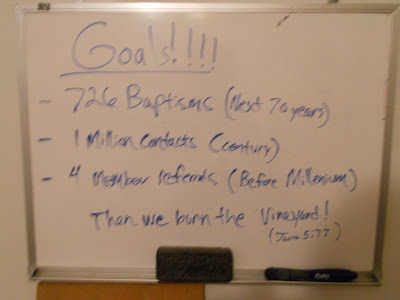 Goals!!!!
- 726 Baptisms (Next 70 years)
- 1 Million Contacts (century)
- 4 Member referrals (Before Millenium)
Then we burn the Vineyard!
(Jacob 5:77)